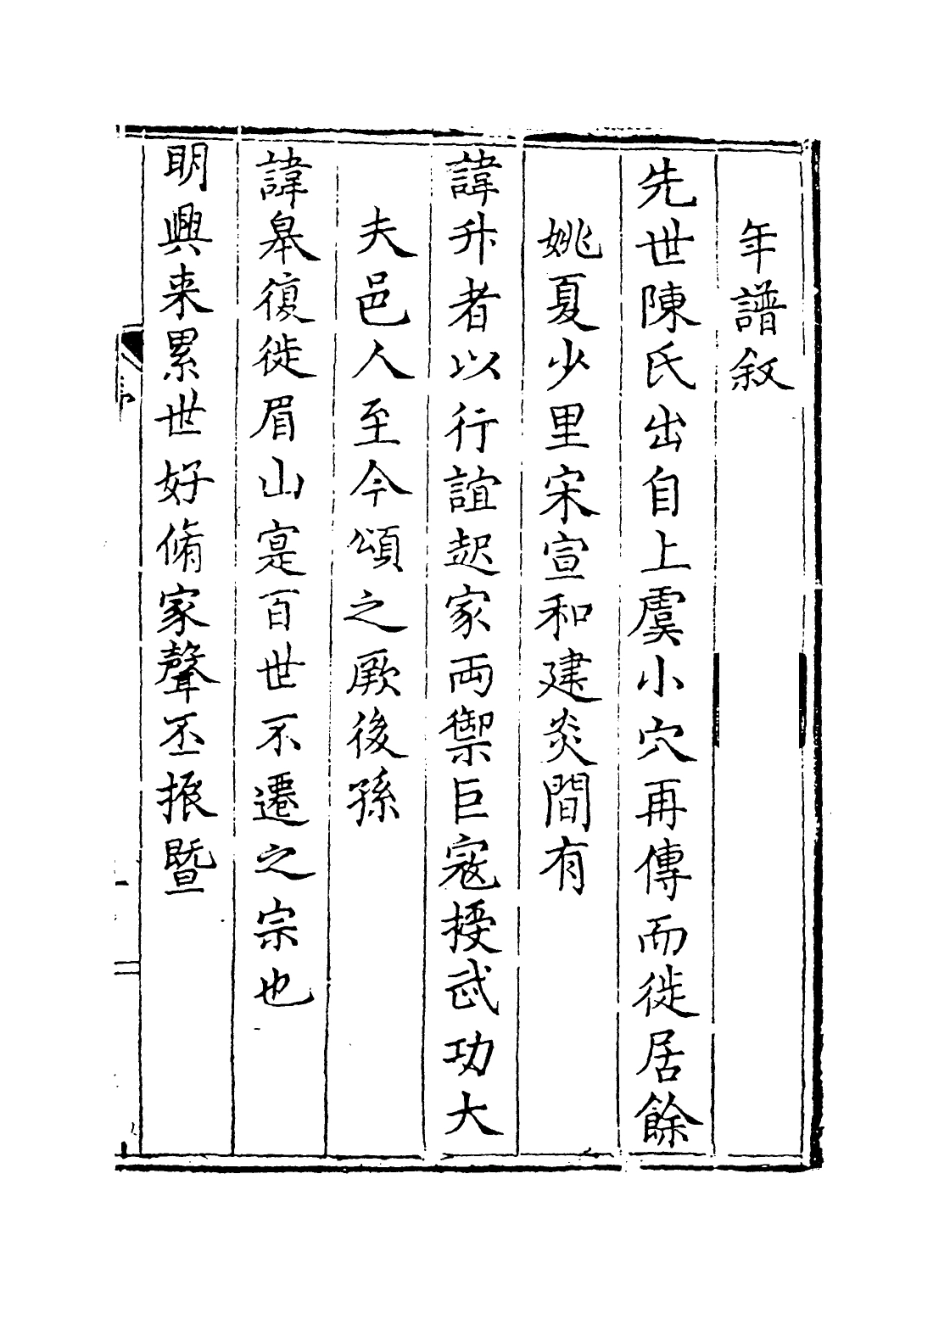 年譜叙
先世陳氏出自上虞小穴再傳而徙居餘
姚夏少里宋宣和建炎間有
諱升者以行誼起家両禦巨寇授武功大
夫邑人至今頌之厥後孫
諱皋復徙眉山寔百世不遷之宗也
明興来累世好脩家聲丕振暨